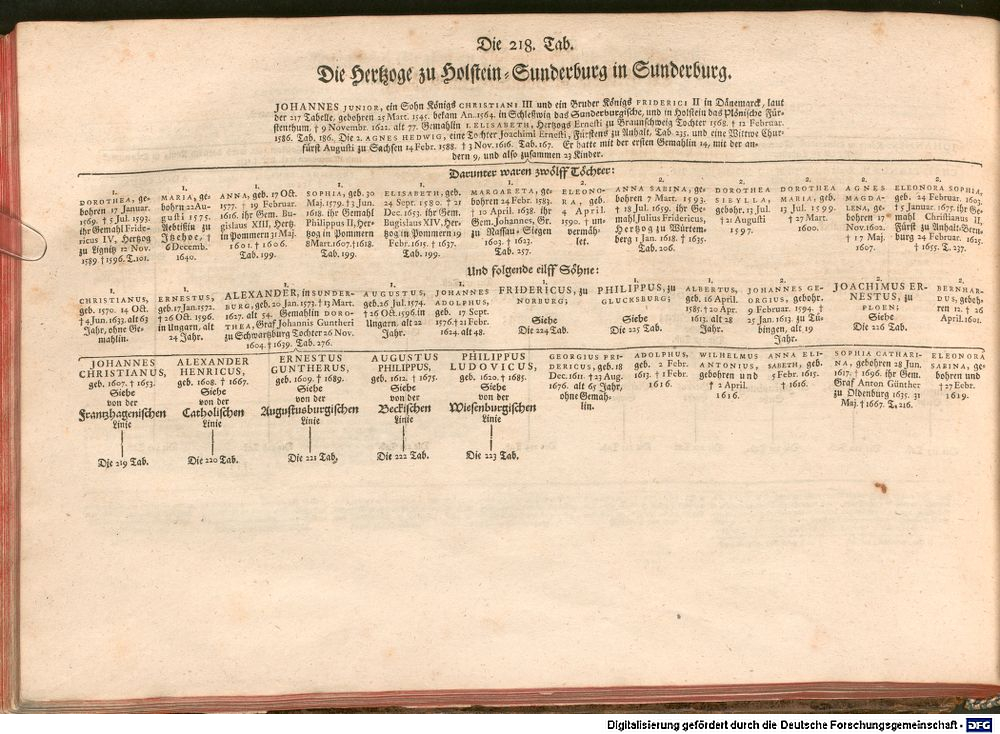 Die 218. Tab.
Die Hertzoge zu Holstein-Sunderburg in Sunderburg.
JOHANNES JUNIOR, ein Sohn Königs CHRISTIANI III und ein Bruder Königs FRIDERICI II in Dänemarck, laut
der 217 Tabelle, gebohren 25 Mart. 1545. bekam An. 1564. in Schleßwig das Sunderburgische, und in Holstein das Plönische Für-
stenthum, † 9 Novembr. 1622. alt 77. Gemahlin 1. ELISABETH, Hertzogs Ernesti zu Braunschweig Tochter 1568. † 12 Februar.
1586. Tab. 186. Die 2. AGNES HEDWIG, eine Tochter Joachimi Ernesti, Fürstens zu Anhalt, Tab. 235. und eine Wittwe Chur-
fürst Augusti zu Sachsen 14 Febr. 1588. † 3 Nov. 1616. Tab. 167. Er hatte mit der ersten Gemahlin 14, mit der an-
dern 9, und also zusammen 23 Kinder.
Darunter waren zwölff Töchter:
1.
DOROTHEA, ge-
bohren 17 Januar.
1569. † 5 Jul. 1593.
ihr Gemahl Fride-
ricus IV, Hertzog
zu Lignitz 12 Nov.
1589 † 1596. T. 101.
1.
MARIA, ge-
bohrn 22 Au-
gusti 1575.
Aebtißin zu
Itzehoe, †
6 Decemb.
1640.
1.
ANNA, geb. 17 Oct.
1577. † 19 Februar.
1616. ihr Gem. Bu-
gislaus XIII, Hertz.
in Pommern 31 Maj.
1601. † 1606.
Tab. 199.
1.
SOPHIA, geb. 30
Maj. 1579. † 3 Jun.
1618. ihr Gemahl
Philippus II, Her-
tzog in Pommern
8 Mart. 1607. † 1618.
Tab. 199.
1.
ELISABETH, geb.
24 Sept. 1580. † 21
Dec. 1653. ihr Gem.
Bugislaus XIV, Her-
tzog in Pommern 19
Febr. 1615. † 1637.
Tab. 199.
1.
MARGARETA, ge-
bohren 24 Febr. 1583.
† 10 April. 1638. ihr
Gem. Johannes, Gr.
zu Nassau-Siegen
1603. † 1623.
Tab. 257.
2.
ELEONO-
RA, geb.
4 April.
1590. † un-
vermäh-
let.
2.
ANNA SABINA, ge-
bohren 7 Mart. 1593.
† 18 Jul. 1659. ihr Ge-
mahl Julius Fridericus,
Hertzog zu Würtem-
berg 1 Jan. 1618. † 1635.
Tab. 206.
2.
DOROTHEA
SIBYLLA,
gebohr. 13 Jul.
† 21 Augusti
1597.
2.
DOROTHEA
MARIA, geb.
13 Jul. 1599.
† 27 Mart.
1600.
2.
AGNES
MAGDA-
LENA, ge-
bohren 17
Nov. 1602.
† 17 Maj.
1607.
2.
ELEONORA SOPHIA,
geb. 24 Februar. 1603.
† 5 Januar. 1675. ihr Ge-
mahl Christianus II,
Fürst zu Anhalt-Bern-
burg 24 Februar. 1625.
† 1655. T. 237.
Und folgende eilff Söhne:
1.
CHRISTIANUS,
geb. 1570. 14 Oct.
† 4 Jun. 1633. alt 63
Jahr, ohne Ge-
mahlin.
1.
ERNESTUS,
geb. 17 Jan. 1572.
† 26 Oct. 1596.
in Ungarn, alt
24 Jahr.
1.
ALEXANDER, in SUNDER-
BURG, geb. 20 Jan. 1573. † 13 Mart.
1627. alt 54. Gemahlin DORO-
THEA, Graf Johannis Guntheri
zu Schwartzburg Tochter 26 Nov.
1604. † 1639. Tab. 276.
1.
AUGUSTUS,
geb. 26 Jul. 1574.
† 26 Oct. 1596. in
Ungarn, alt 22
Jahr.
1.
JOHANNES
ADOLPHUS,
geb. 17 Sept.
1576. † 21 Febr.
1624. alt 48.
1.
FRIDERICUS, zu
NORBURG;
Siehe
Die 224 Tab.
1.
PHILIPPUS, zu
GLUCKSBURG;
Siehe
Die 225 Tab.
1.
ALBERTUS,
geb. 16 April.
1585. † 20 Apr.
1613. alt 28
Jahr.
2.
JOHANNES GE-
ORGIUS, gebohr.
9 Februar. 1594. †
25 Jan. 1613. zu Tü-
bingen, alt 19
Jahr.
2.
JOACHIMUS ER-
NESTUS, zu
PLOEN;
Siehe
Die 226 Tab.
2.
BERNHAR-
DUS, geboh-
ren 12. † 26
April. 1601.
JOHANNES
CHRISTIANUS,
geb. 1607. † 1653.
Siehe
von der
Frantzhagenischen
Linie
Die 219 Tab.
ALEXANDER
HENRICUS,
geb. 1608. † 1667.
Siehe
von der
Catholischen
Linie
Die 220 Tab.
ERNESTUS
GUNTHERUS,
geb. 1609. † 1689.
Siehe
von der
Augustusburgischen
Linie
Die 221 Tab.
AUGUSTUS
PHILIPPUS,
geb. 1612. † 1675.
Siehe
von der
Beckischen
Linie
Die 222 Tab.
PHILIPPUS
LUDOVICUS,
geb. 1620. † 1685.
Siehe
von der
Wiesenburgischen
Linie
Die 223 Tab.
GEORGIUS FRI-
DERICUS, geb. 18
Dec. 1611. † 23 Aug.
1676. alt 65 Jahr,
ohne Gemah-
lin.
ADOLPHUS,
geb. 2 Febr.
1613. † 1 Febr.
1616.
WILHELMUS
ANTONIUS,
gebohren und
† 2 April.
1616.
ANNA ELI-
SABETH, geb.
5 Febr. 1615.
† 1616.
SOPHIA CATHARI-
NA, gebohren 28 Jun.
1617. † 1696. ihr Gem.
Graf Anton Günther
zu Oldenburg 1635. 31
Maj. † 1667. T. 216.
ELEONORA
SABINA, ge-
bohren und
† 27 Febr.
1619.
Digitalisierung gefördert durch die Deutsche Forschungsgemeinschaft - DFG